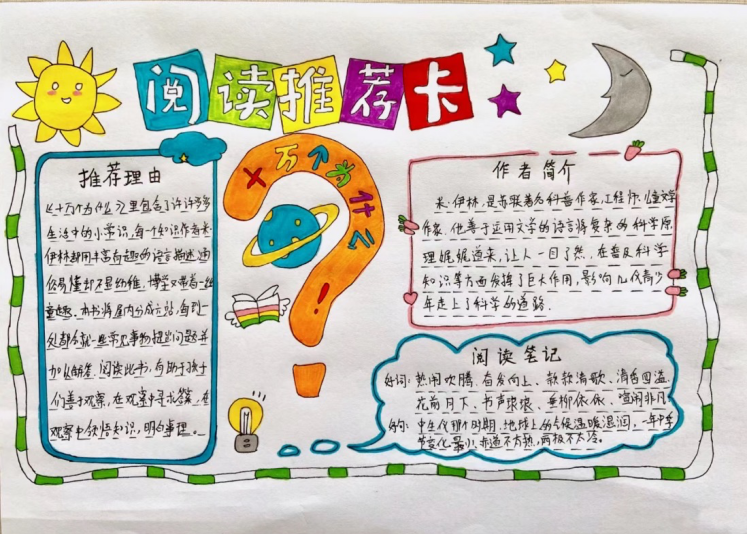 阅读推荐卡
十万个为什么
推荐理由
《十万个为什么》里包含了许许多多
生活中的小学识,每一个知识作者米·
伊林都用丰富有趣的语言描述,通
俗易懂却不是幼稚,博学又带着一丝
童趣。本书将屋内分成六站,每到一
处都会就一些常见事物提出问题并
加以解答。阅读此书,有助于孩子
们善于观察,在观察中寻求答案,在
观察中领悟知识,明白事理。
作者简介
米·伊林,是苏联著名科普作家,工程师,儿童文学
作家。他善于应用文学的语言将复杂的科学原
理娓娓道来,让人一目了然。在普及科学
知识等方面发挥了巨大作用,影响几代青少
年走上了科学的道路.
阅读笔记
好词:热闹吹腾、奋发向上、软软清歌、清香四溢、
花前月下、书声琅琅、垂柳依依、喧闹非凡
句:中生代那个时期,地球上的气候温暖湿润,一年中季
节变化最小,赤道不太热,两极不太冷。